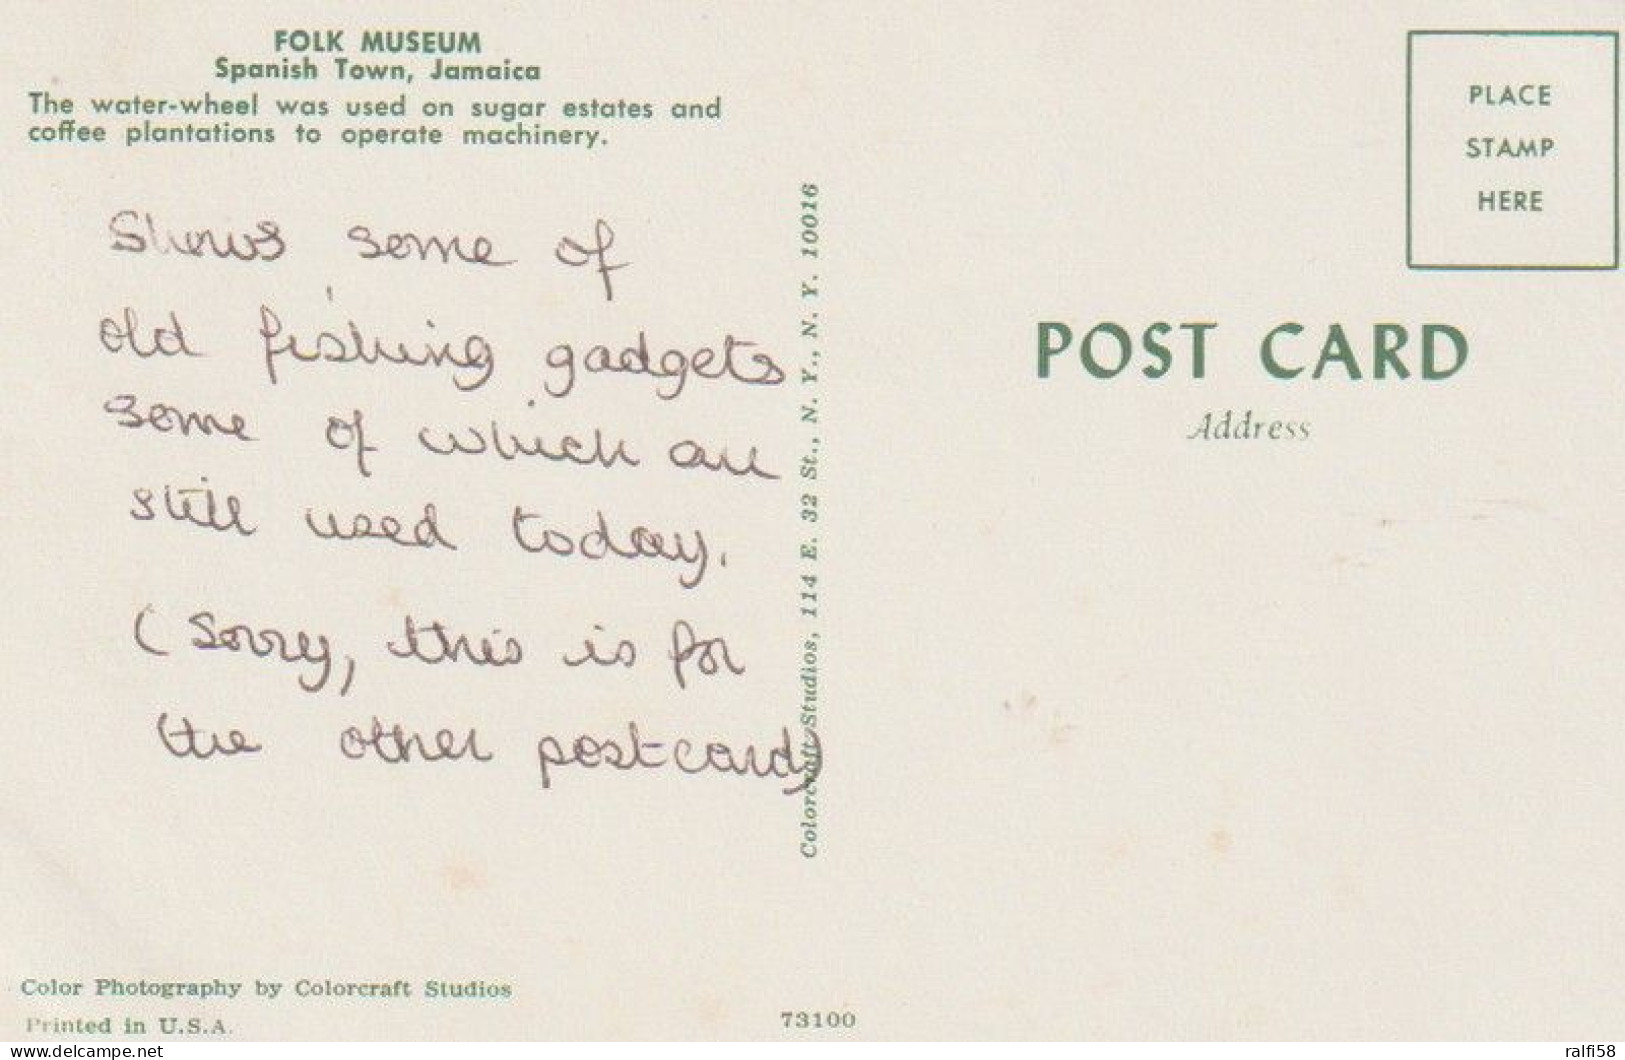 FOLK MUSEUM
Spanish Town, Jamaica
The water-wheel was used on sugar estates and
coffee plantations to operate machinery.
Shows some of
old fishing gadgets
some of which are
still used today.
(Sorry, this is for
the other postcard)
Color Photography by Colorcraft Studios
Printed in U.S.A.
Colorcraft Studios, 114 E. 32 St., N. Y., N. Y. 10016
73100
PLACE
STAMP
HERE
POST CARD
Address
ralfi58